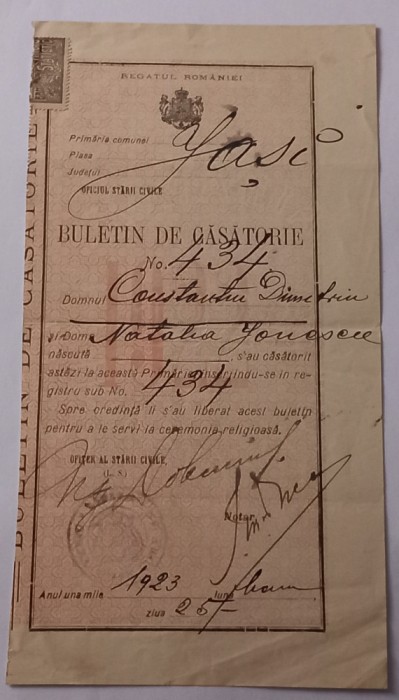 REGATUL ROMÂNIEI
Primăria comunei Iași
Plasa
Județul
OFICIUL STĂRII CIVILE
BULETIN DE CĂSĂTORIE
No. 434
Domnul Constantin Dimitriu
și Domna Natalia Ionescu
născută , s'au căsătorit
astăzi la această Primărie înscriindu-se in re-
gistru sub No. 434
Spre credință li s'au liberat acest buletin
pentru a le servi la ceremonia religioasă.
OFIȚER AL STĂRII CIVILE,
(L. S.)
Notar
Anul una mie 1923 luna
ziua 25
BULETIN DE CĂSĂTORIE